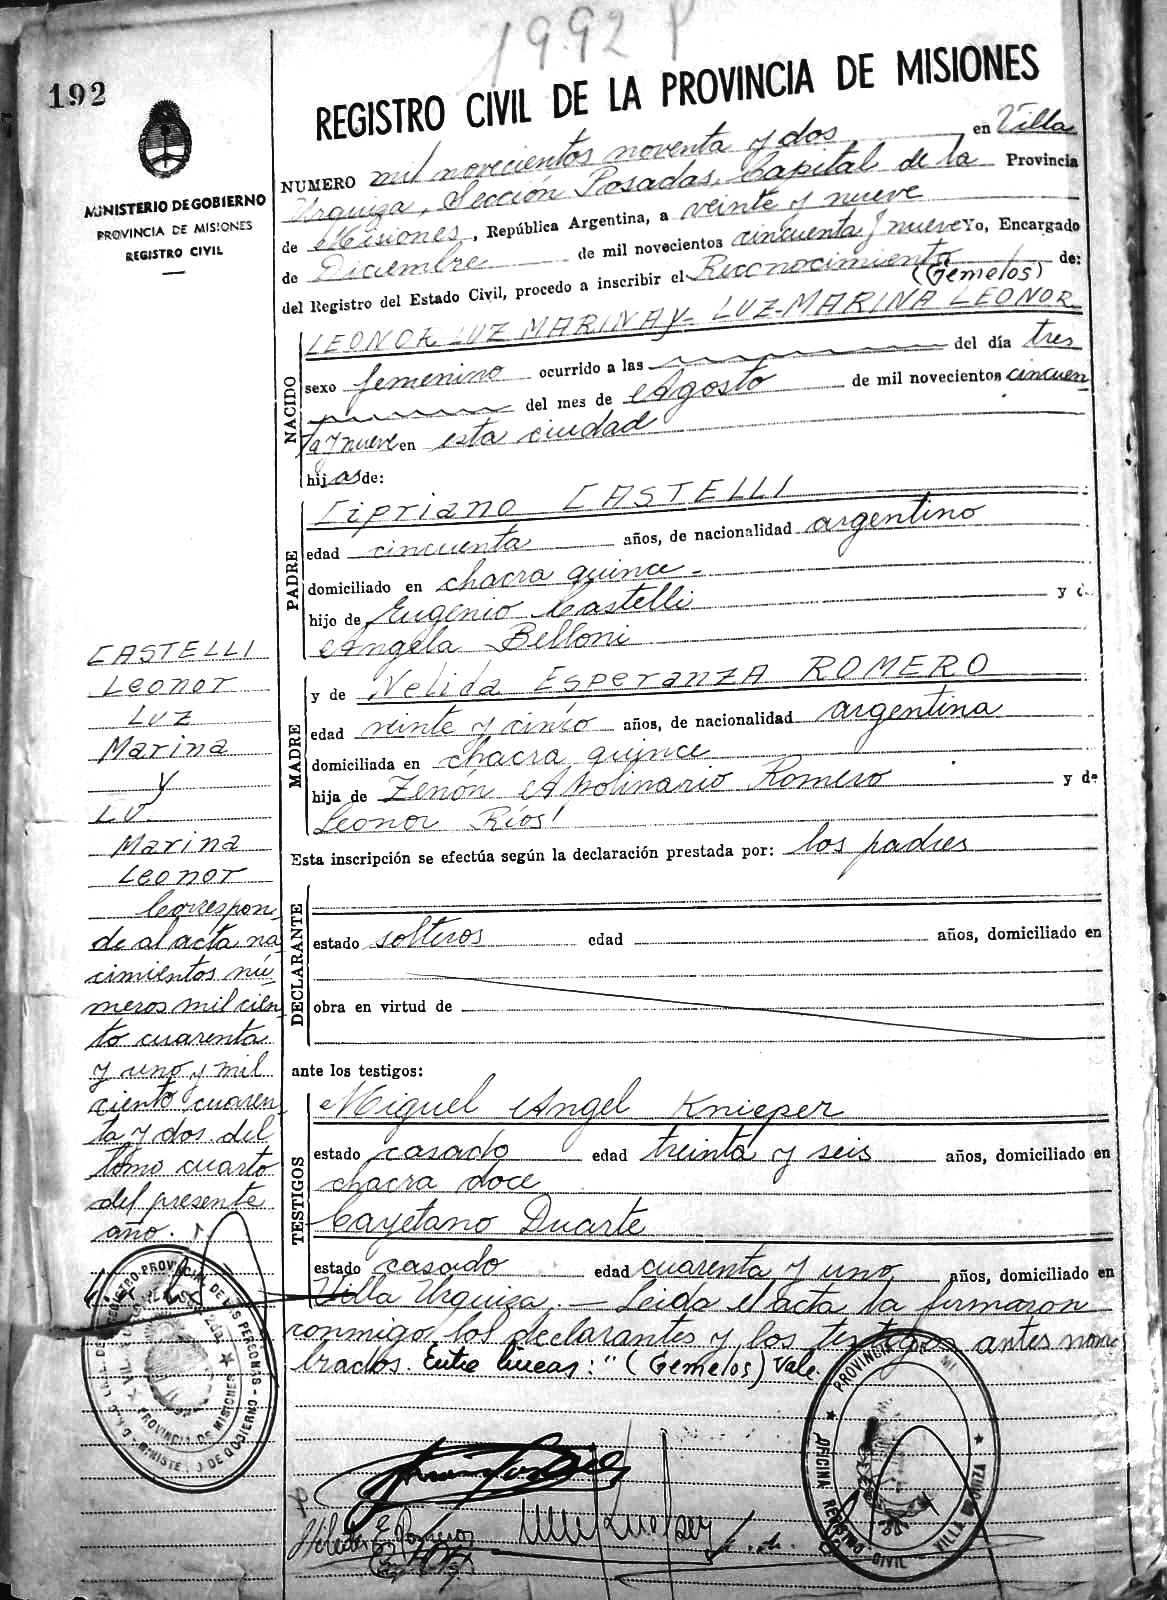 1992 P
192
REGISTRO CIVIL DE LA PROVINCIA DE MISIONES
MINISTERIO DE GOBIERNO
PROVINCIA DE MISIONES
REGISTRO CIVIL
NUMERO mil novecientos noventa y dos en Villa
Urquiza, Sección Posadas, Capital de la Provincia
de Misiones, República Argentina, a veinte y nueve
de Diciembre de mil novecientos cincuenta y nueve Yo, Encargado
del Registro del Estado Civil, procedo a inscribir el Reconocimiento de:
(Gemelos)
NACIDO
LEONOR LUZ MARINA y LUZ-MARINA LEONOR
sexo femenino ocurrido a las del día tres
del mes de Agosto de mil novecientos cincuen
ta y nueve en esta ciudad
hijas de:
PADRE
Cipriano CASTELLI
edad cincuenta años, de nacionalidad argentino
domiciliado en chacra quince.-
hijo de Eugenio Castelli y d
Angela Belloni
MADRE
y de Nelida Esperanza ROMERO
edad veinte y cinco años, de nacionalidad argentina
domiciliada en chacra quince
hija de Zenón Apolinario Romero y de
Leonor Ríos
Esta inscripción se efectúa según la declaración prestada por: los padres
DECLARANTE
estado solteros edad años, domiciliado en
obra en virtud de
ante los testigos:
TESTIGOS
Miguel Angel Knieper
estado casado edad treinta y seis años, domiciliado en
chacra doce
Cayetano Duarte
estado casado edad cuarenta y uno años, domiciliado en
Villa Urquiza.- Leida el acta la firmaron
conmigo los declarantes y los testigos antes nom
brados. Entre lineas: "(Gemelos) Vale.
CASTELLI
Leonor
Luz
Marina
y
Lu
Marina
Leonor
Correspon
de al acta na
cimientos nú
meros mil cien
to cuarenta
y uno y mil
ciento cuaren
ta y dos del
tomo cuarto
del presente
año.
REGISTRO PROVINCIAL DE LAS PERSONAS
MINISTERIO DE GOBIERNO
PROVINCIA DE MISIONES
PROVINCIA DE MI
OFICINA REGISTRO CIVIL - VILLA URQUIZA